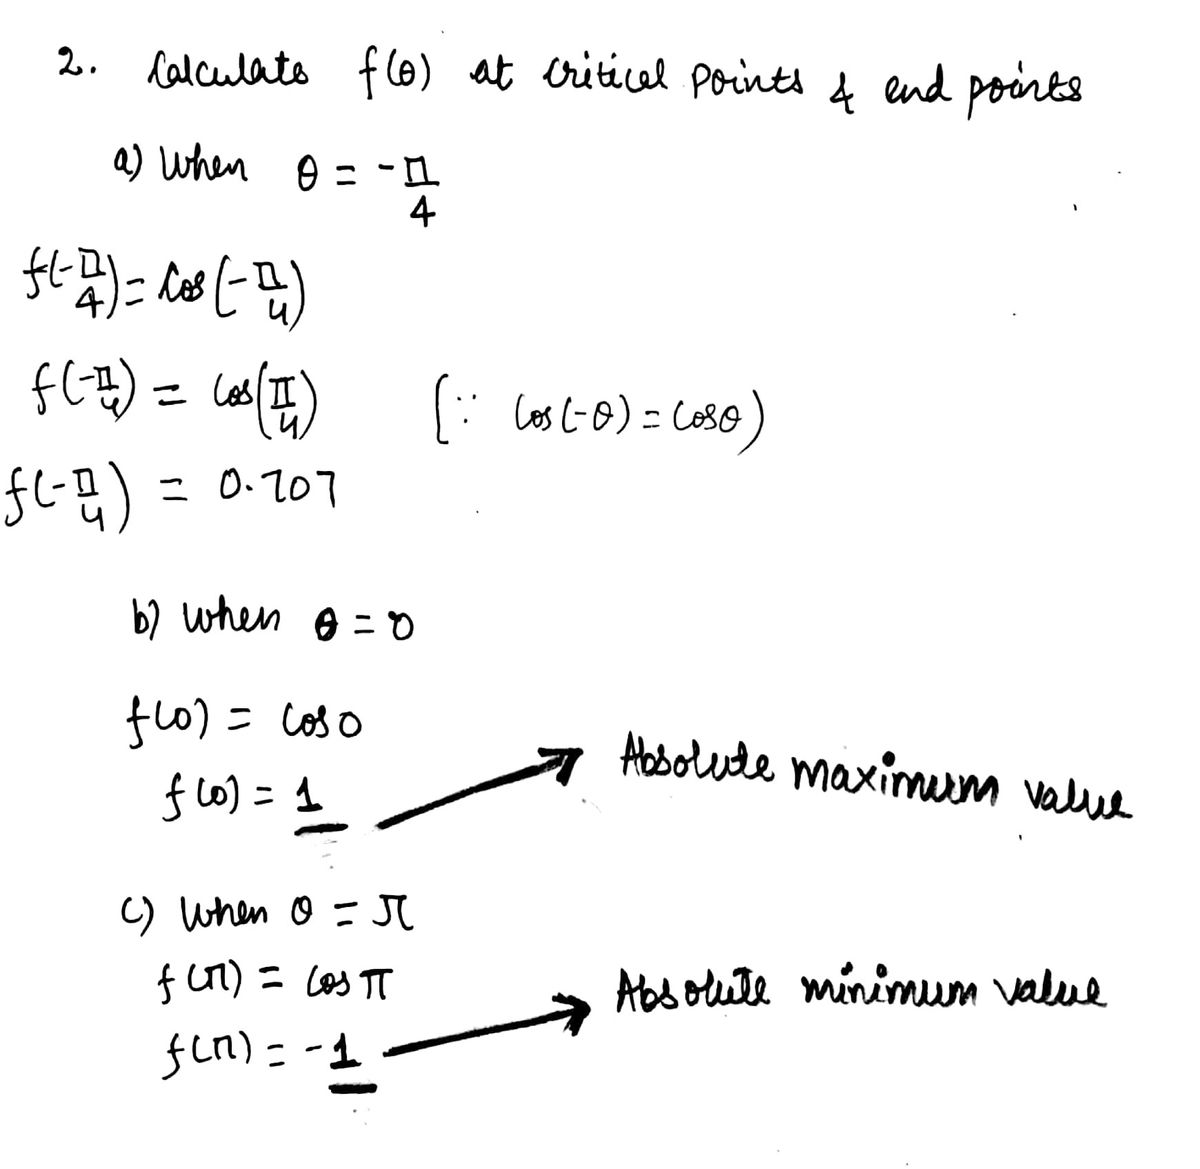 2. Calculate f(θ) at critical points & end points
a) When θ = -π/4
f(-π/4) = Cos(-π/4)
f(-π/4) = Cos(π/4) (∵ Cos(-θ) = Cosθ)
f(-π/4) = 0.707
b) when θ = 0
f(0) = Cos 0
f(0) = 1 → Absolute maximum value
c) When θ = π
f(π) = Cos π
f(π) = -1 → Absolute minimum value